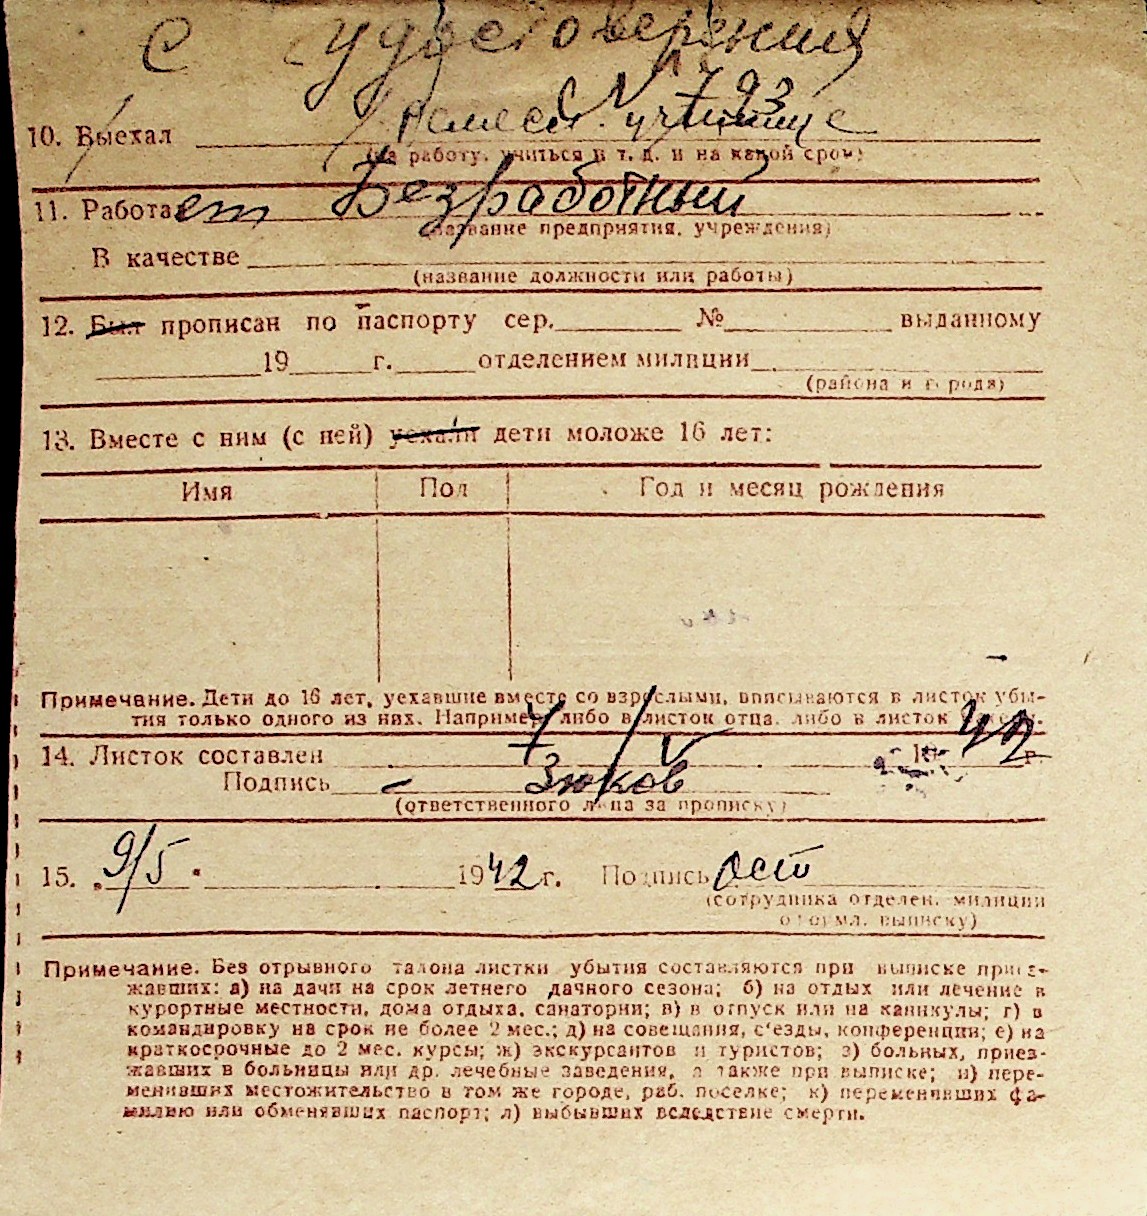 с удостоверения
№ 793
10. Выехал Ремесл. училище
(на работу, учиться и т. д. и на какой срок)
11. Работает Безработный
(название предприятия, учреждения)
В качестве
(название должности или работы)
12. Был прописан по паспорту сер. № выданному
19 г. отделением милиции
(района и города)
13. Вместе с ним (с ней) уехали дети моложе 16 лет:
Имя Пол Год и месяц рождения
Примечание. Дети до 16 лет, уехавшие вместе со взрослыми, вписываются в листок убы-
тия только одного из них. Например, либо в листок отца, либо в листок
14. Листок составлен 7/V 42 г.
Подпись Зюков
(ответственного лица за прописку)
15. 9/5 1942 г. Подпись Ост
(сотрудника отделен. милиции
оформл. выписку)
Примечание. Без отрывного талона листки убытия составляются при выписке приез-
жавших: а) на дачи на срок летнего дачного сезона; б) на отдых или лечение в
курортные местности, дома отдыха, санатории; в) в отпуск или на каникулы; г) в
командировку на срок не более 2 мес.; д) на совещания, с'езды, конференции; е) на
краткосрочные до 2 мес. курсы; ж) экскурсантов и туристов; з) больных, приез-
жавших в больницы или др. лечебные заведения, а также при выписке; и) пере-
менивших местожительство в том же городе, раб. поселке; к) переменивших фа-
милию или обменявших паспорт; л) выбывших вследствие смерти.